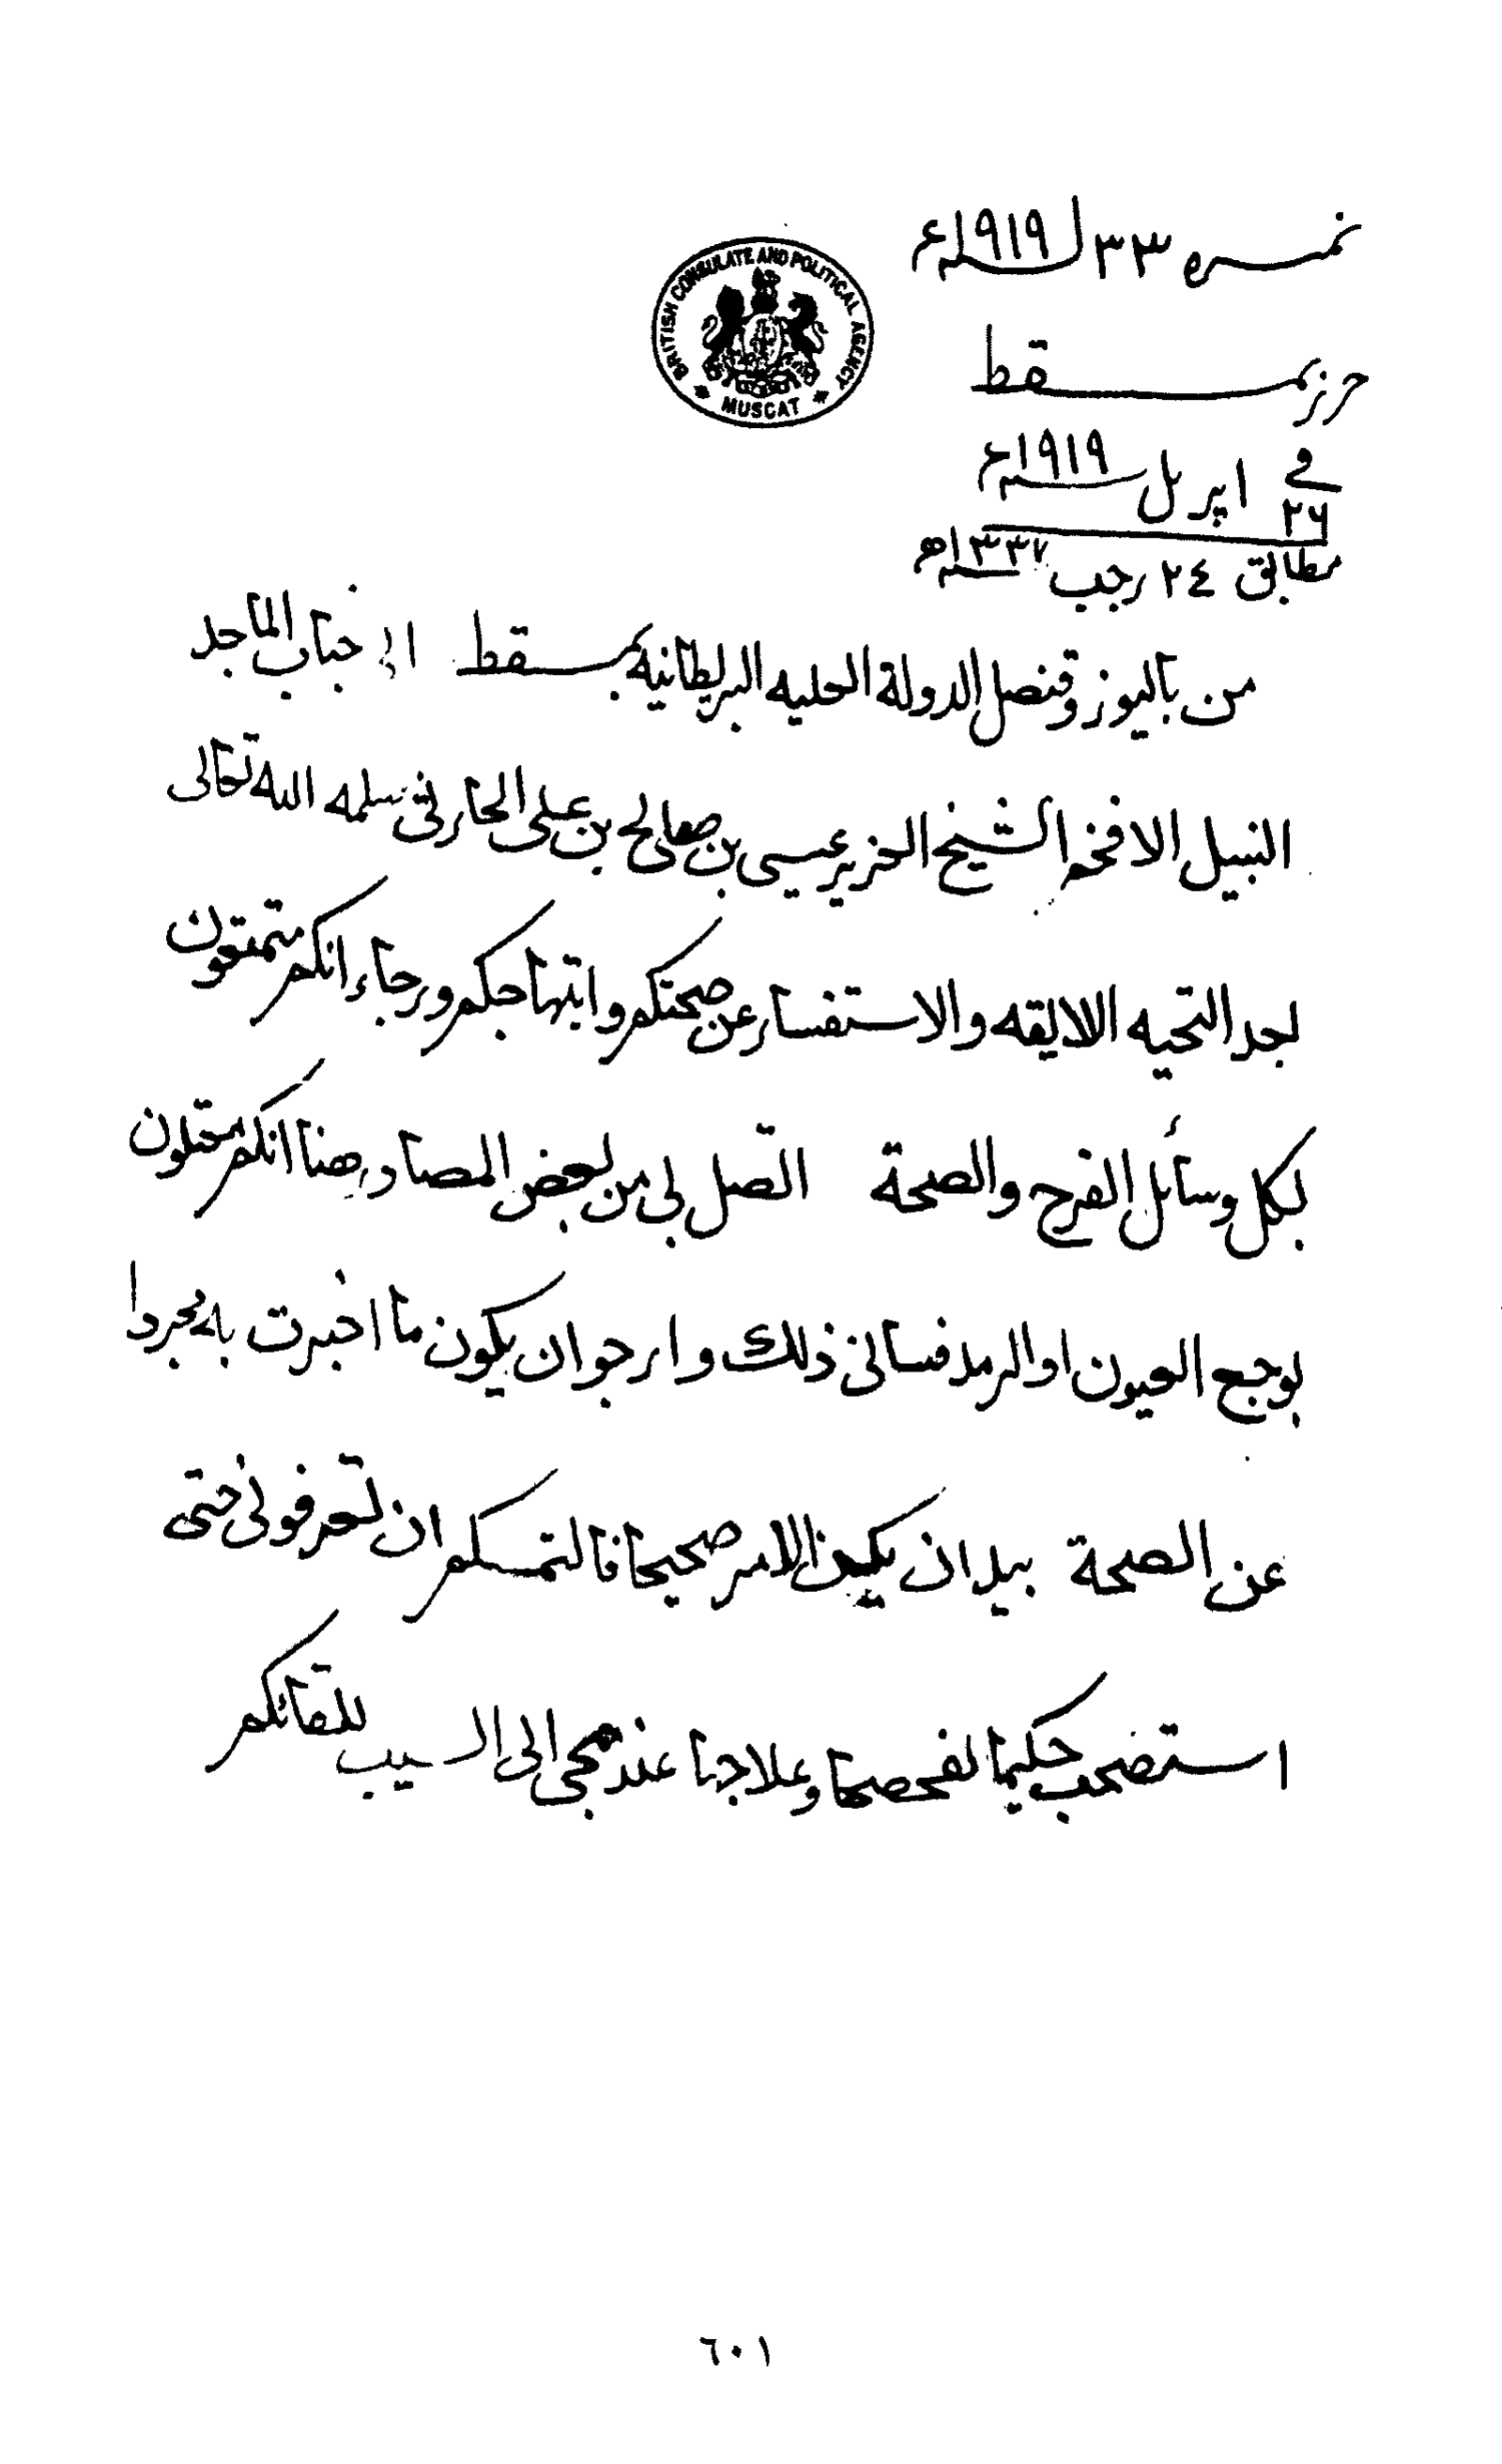 نمره ٣٣ لسنة ١٩١٩ء
BRITISH CONSULATE AND POLITICAL AGENCY
MUSCAT
حرر بمسقط
في ٢٦ اپريل سنة ١٩١٩ء
مطابق ٢٤ رجب سنة ١٣٣٧ه
من باليوز وقنصل الدولة العليه البريطانيه بمسقط الى جناب الماجد
النبيل الافخم الشيخ العزيز عيسى بن صالح بن علي الحارثي سلمه الله تعالى
بعد التحيه اللايقه والاستفسار عن صحتكم وابتهاجكم ورجاء انكم متمتعون
بكل وسائل الفرح والصحة اتّصل لي من بعض المصادر هنا انكم معتلون
بوجع العيون او الرمد فساني ذلك وارجو ان يكون ما اخبرت به مجردا
عن الصحة بيد ان يكون الامر صحيحا فالتمسكم ان تعرفوني حتى
استصحب حكيما لفحصها وعلاجها عند مجي الى السيب للقائكم
٦٠١